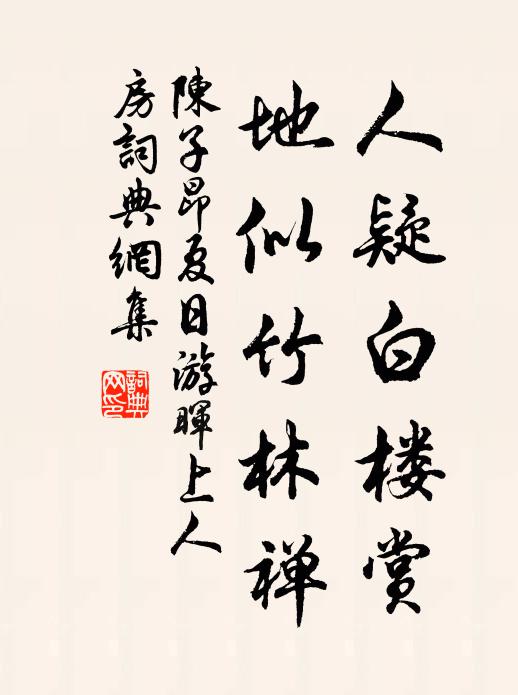 人疑白楼赏
地似竹林禅
陳子昂夏日游暉上人
房詞典網集
詞典网印